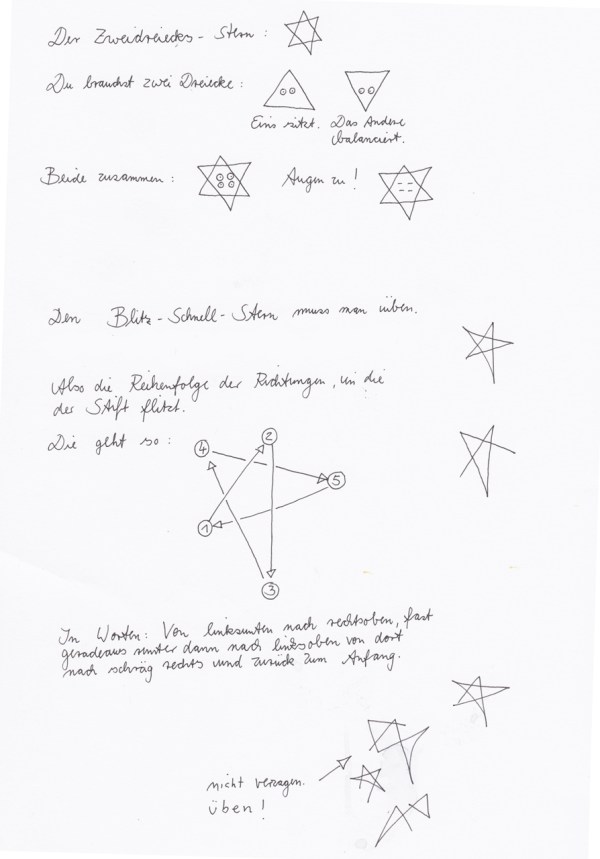 Der Zweidreiecks-Stern:
Du brauchst zwei Dreiecke:
Eins sitzt. Das Andere
balanciert.
Beide zusammen: Augen zu!
Den Blitz-Schnell-Stern muss man üben.
Also die Reihenfolge der Richtungen, in die
der Stift flitzt.
Die geht so:
4 2
5
1
3
In Worten: Von linksunten nach rechtsoben, fast
geradeaus runter dann nach linksoben von dort
nach schräg rechts und zurück zum Anfang.
nicht verzagen.
üben!